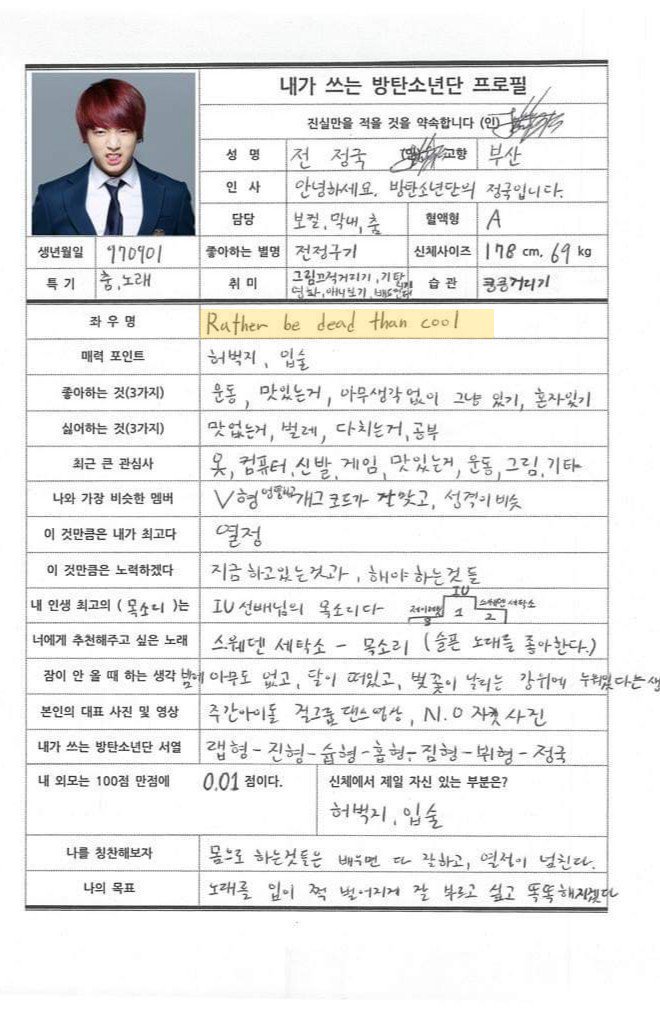 내가 쓰는 방탄소년단 프로필
진실만을 적을 것을 약속합니다 (인)
성 명 전 정국 고향 부산
인 사 안녕하세요. 방탄소년단의 정국입니다.
담당 보컬, 막내, 춤 혈액형 A
생년월일 970901 좋아하는 별명 전정구기 신체사이즈 178 cm, 69 kg
특 기 춤,노래 취 미 그림끄적거리기, 기타
영화, 애니보기, 습 관 킁킁거리기
좌 우 명 Rather be dead than cool
매력 포인트 허벅지, 입술
좋아하는 것(3가지) 운동, 맛있는거, 아무생각없이 그냥 있기, 혼자있기
싫어하는 것(3가지) 맛없는거, 벌레, 다치는거, 공부
최근 큰 관심사 옷, 컴퓨터, 신발, 게임, 맛있는거, 운동, 그림, 기타
나와 가장 비슷한 멤버 V형 개그 코드가 잘맞고, 성격이 비슷
이 것만큼은 내가 최고다 열정
이 것만큼은 노력하겠다 지금 하고있는것과, 해야 하는것들
내 인생 최고의 ( 목소리 )는 IU 선배님의 목소리다 3 IU 1 스웨덴 세탁소 2
너에게 추천해주고 싶은 노래 스웨덴 세탁소 - 목소리 (슬픈 노래를 좋아한다.)
잠이 안 올 때 하는 생각 밤에 아무도 없고, 달이 떠있고, 벚꽃이 날리는 강위에 누워있다는 생
본인의 대표 사진 및 영상 주간아이돌 걸그룹댄스영상, N.O 자켓 사진
내가 쓰는 방탄소년단 서열 랩형-진형-슙형-홉형-짐형-뷔형-정국
내 외모는 100점 만점에 0.01 점이다. 신체에서 제일 자신 있는 부분은?
허벅지, 입술
나를 칭찬해보자 몸으로 하는것들은 배우면 다 잘하고, 열정이 넘친다.
나의 목표 노래를 입이 쩍 벌어지게 잘 부르고 싶고 똑똑해지겠다